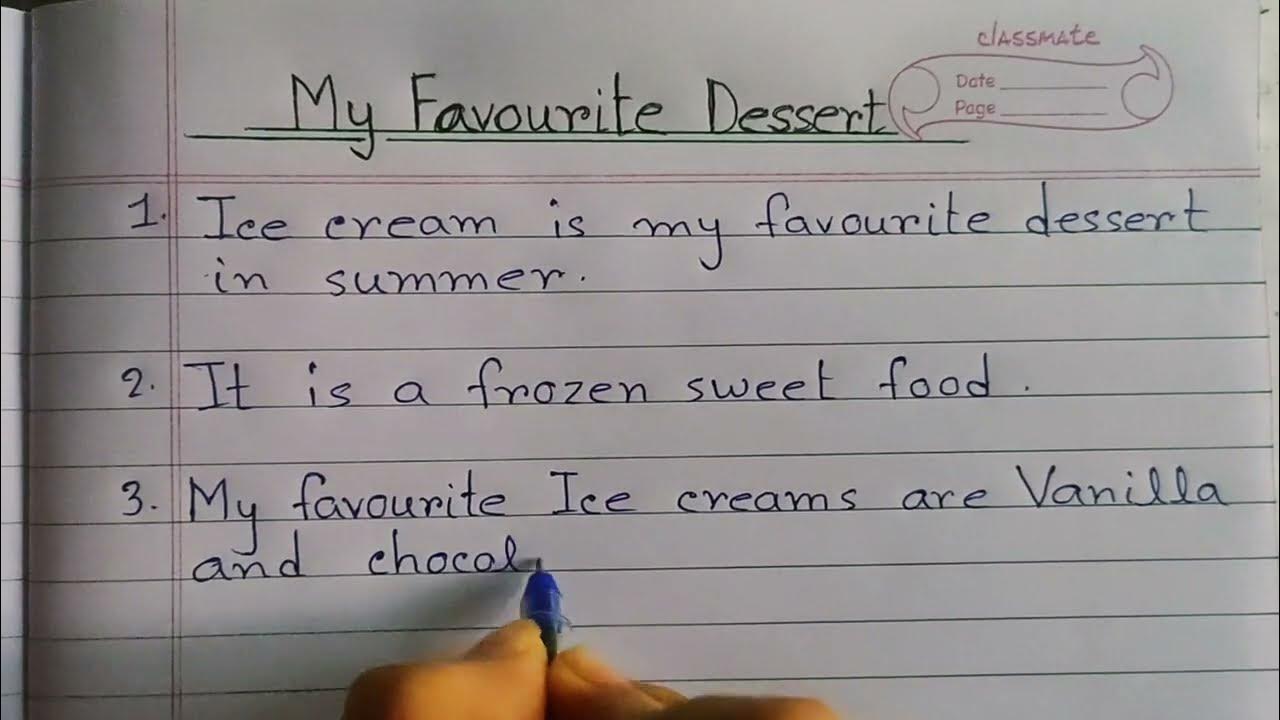 classmate
Date
Page
My Favourite Dessert
1. Ice cream is my favourite dessert
in summer.
2. It is a frozen sweet food.
3. My favourite Ice creams are Vanilla
and chocol